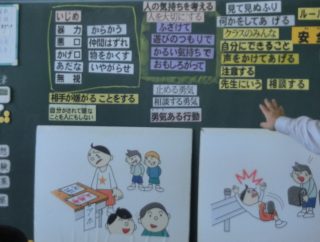 いじめ
暴力
悪口
かげ口
あだな
無視
からかう
仲間はずれ
物をかくす
いやがらせ
相手が嫌がることをする
自分がされて嫌な
ことを人にもしない
人の気持ちを考える
人を大切にする
ふざけて
遊びのつもりで
かるい気持ちで
おもしろがって
止める勇気
相談する勇気
勇気ある行動
見て見ぬふり
何かをしてあげる
クラスのみんな
自分にできること
声をかけてあげる
注意する
先生にいう 相談する
ルー
安全